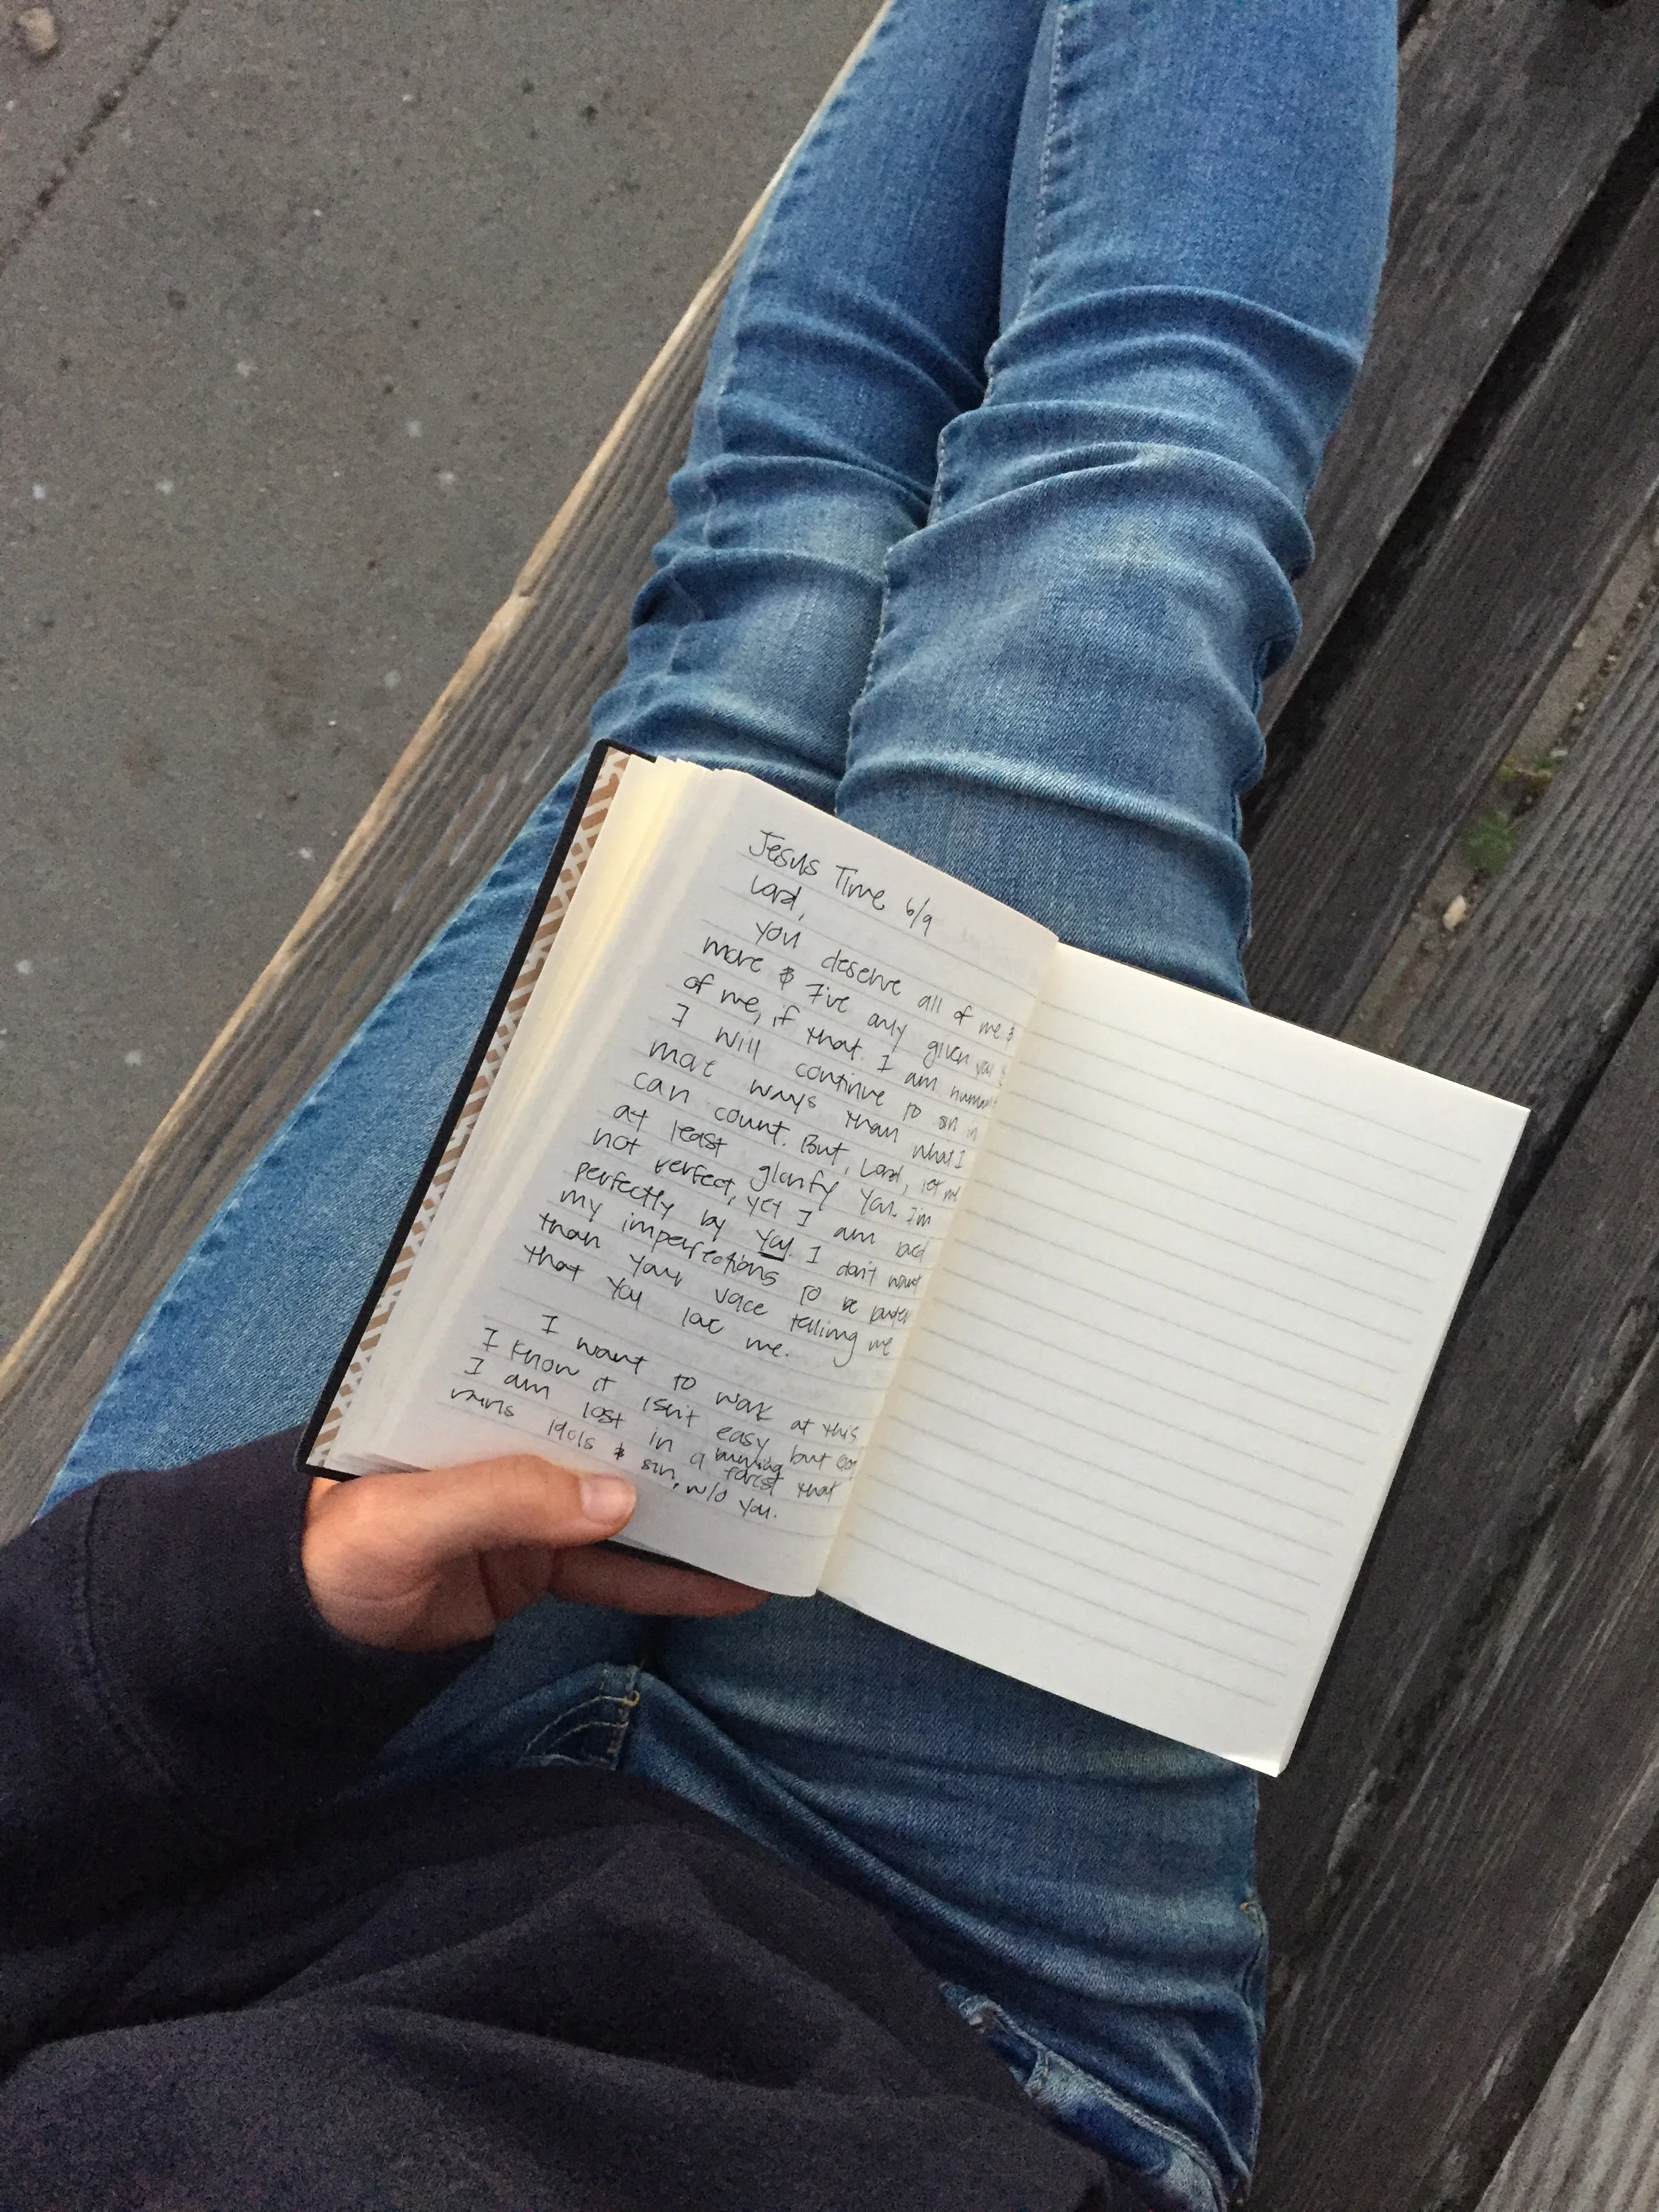 Jesus Time 6/9
Lord,
You deserve all of me &
more & I've only given you
of me, if that. I am human
I will continue to sin in
more ways than what I
can count. But, Lord, let me
at least glorify You. I'm
not perfect, yet I am
perfectly by You. I don't want
my imperfections to be louder
than Your voice telling me
that You love me.
I want to work at this
I know it isn't easy but
I am lost in a burning forest that
idols & sin, w/o You.